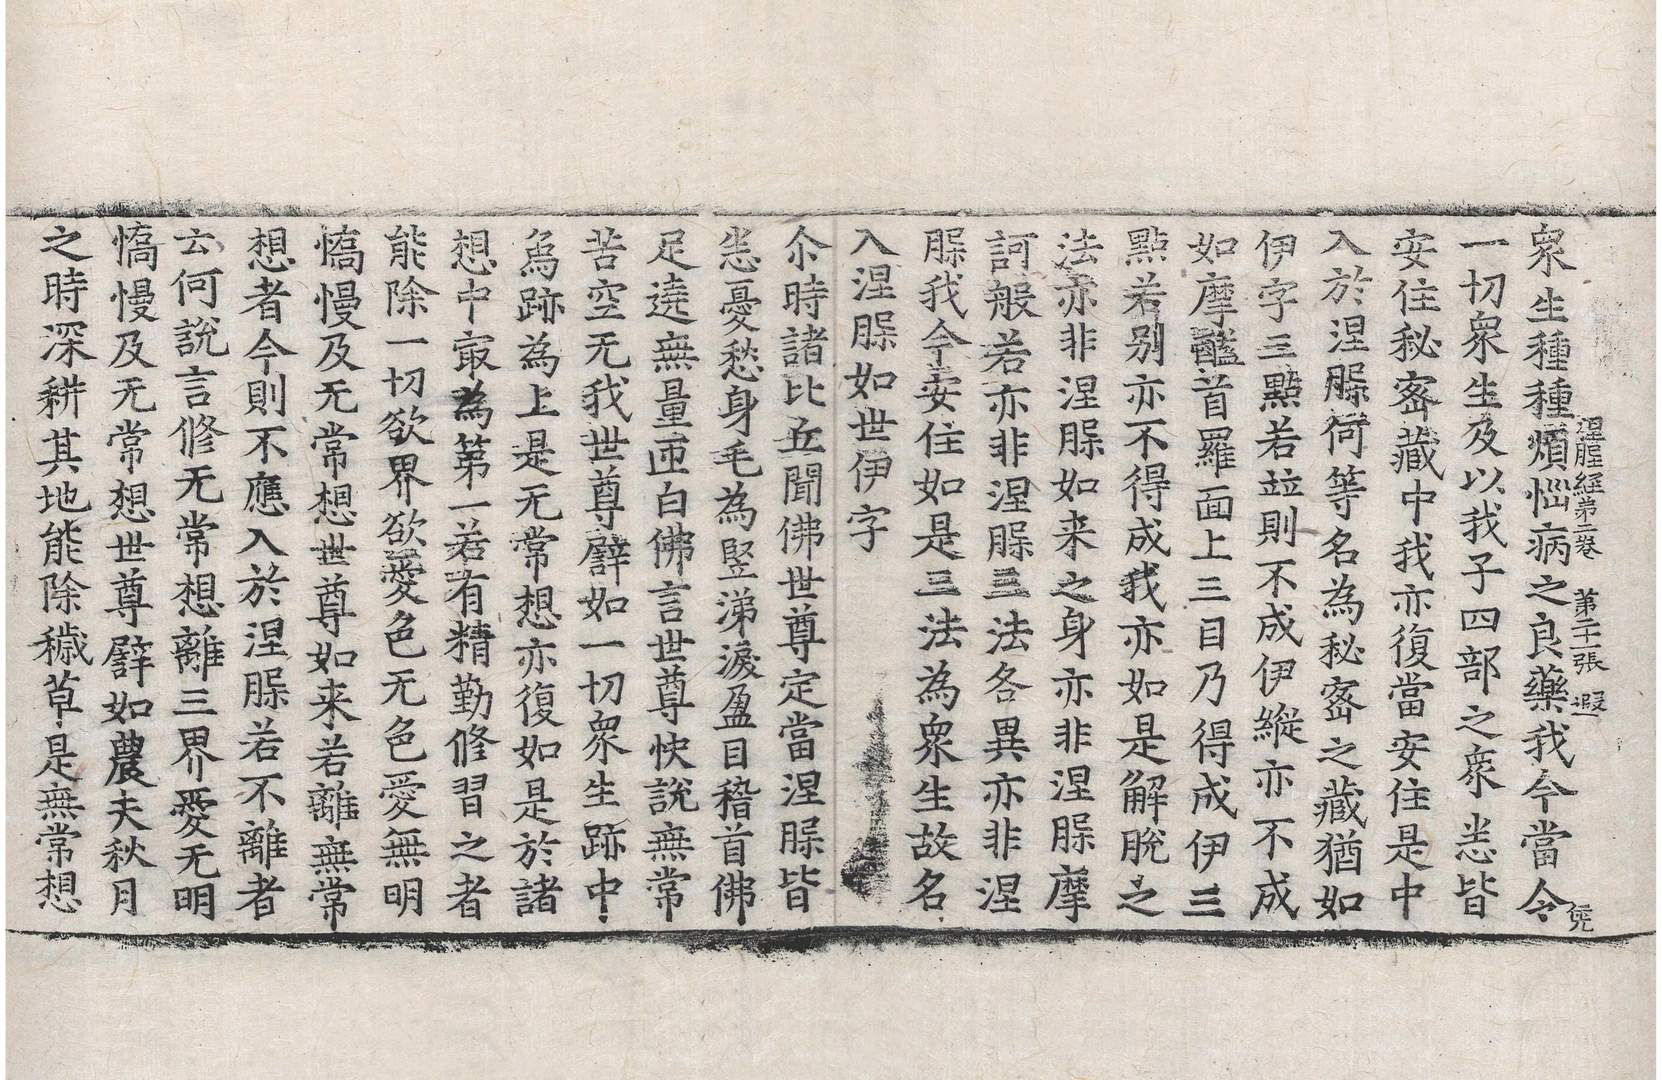 衆生種種煩惱病之良藥我今當令
涅脭經第二卷　第二十一張　遐
一切衆生及以我子四部之衆悉皆
安住秘密藏中我亦復當安住是中
入於涅脭何等名為秘密之藏猶如
伊字三點若竝則不成伊縱亦不成
如摩醯首羅面上三目乃得成伊三
點若別亦不得成我亦如是解脫之
法亦非涅脭如来之身亦非涅脭摩
訶般若亦非涅脭三法各異亦非涅
脭我今安住如是三法為衆生故名
入涅脭如世伊字
尒時諸比丘聞佛世尊定當涅脭皆
悉憂愁身毛為竪涕淚盈目稽首佛
足遶無量匝白佛言世尊快說無常
苦空无我世尊譬如一切衆生跡中
烏跡為上是无常想亦復如是於諸
想中㝡為第一若有精勤修習之者
能除一切欲界欲愛色无色愛無明
憍慢及无常想世尊如来若離無常
想者今則不應入於涅脭若不離者
云何說言修无常想離三界愛无明
憍慢及无常想世尊譬如農夫秋月
之時深耕其地能除穢草是無常想